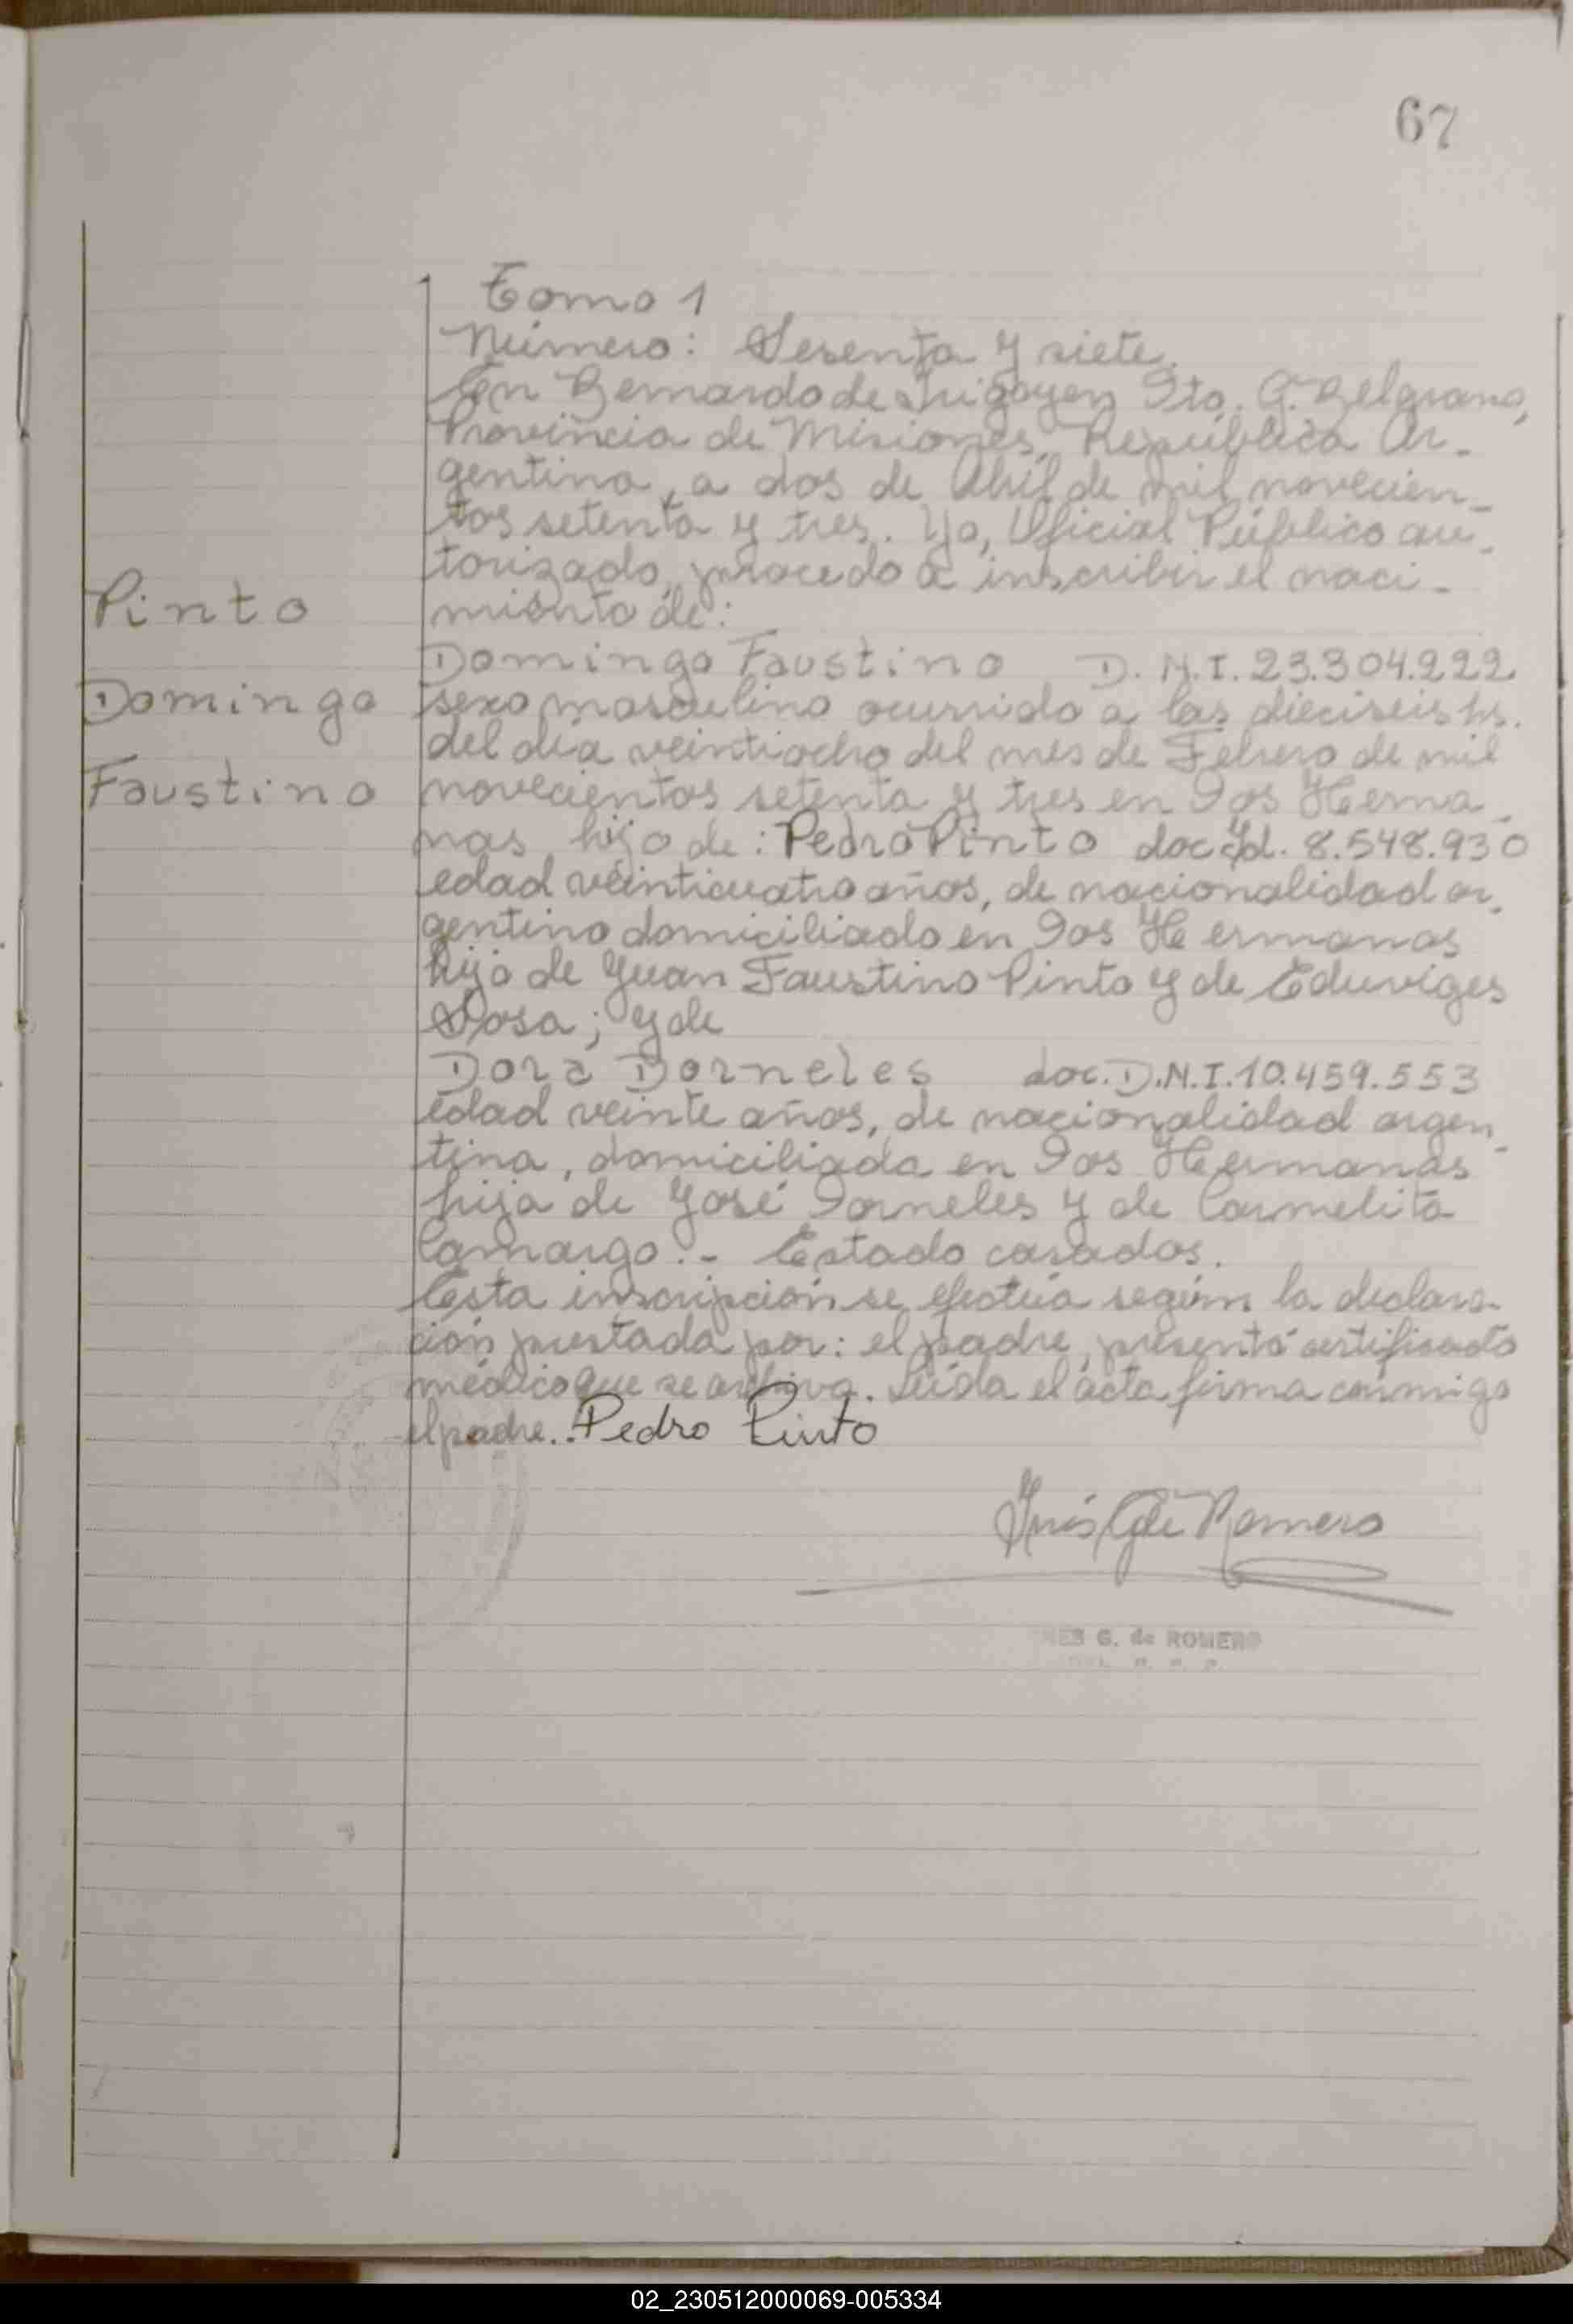 67
Tomo 1
Número: Sesenta y siete.
En Bernardo de Irigoyen Dto. G. Belgrano,
Provincia de Misiones, República Ar-
gentina, a dos de Abril de mil novecien-
tos setenta y tres. Yo, Oficial Público au-
torizado, procedo a inscribir el naci-
miento de:
Pinto
Domingo
Faustino
Domingo Faustino D.N.I. 23.304.222
sexo masculino ocurrido a las dieciseis hs.
del día veintiocho del mes de Febrero de mil
novecientos setenta y tres en Dos Herma-
nas hijo de: Pedro Pinto doc. Id. 8.548.930
edad veinticuatro años, de nacionalidad ar-
gentino domiciliado en Dos Hermanas
hijo de Juan Faustino Pinto y de Eduviges
Sosa; y de
Dora Dorneles doc. D.N.I. 10.459.553
edad veinte años, de nacionalidad argen-
tina, domiciliada en Dos Hermanas
hija de José Dorneles y de Carmelita
Camargo.- Estado casados.
Esta inscripción se efectúa según la declara-
ción prestada por: el padre, presentó certificado
médico que se archiva. Leída el acta firma conmigo
el padre..Pedro Pinto
Inés G de Romero
INES G. de ROMERO
02_230512000069-005334